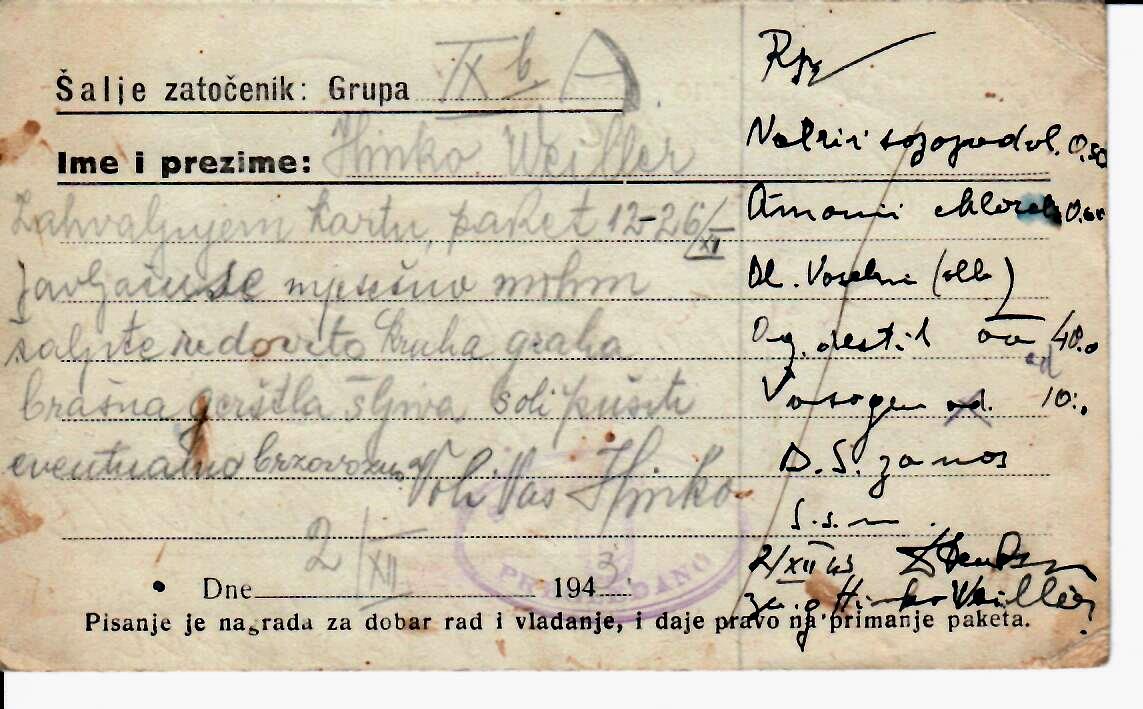 Šalje zatočenik: Grupa IX b.
Ime i prezime: Hinko Weiller
Zahvaljujem kartu, paket 12-26/XI
Javljam se mjesečno molim
šaljite redovito kruha graha
brašna gerštla šljiva soli pušiti
eventualno brzovozno. Voli Vas Hinko
2/XII
Dne 1943.
Pisanje je nagrada za dobar rad i vladanje, i daje pravo na primanje paketa.
Rp/
Natrii 0.50
Amonii chlorat.
Ol. Vaselini (alb)
Aq. destil 40.0
Vasogen ad. 10.
D. S. za nos
2/XII 43
za g Hinko Weiller